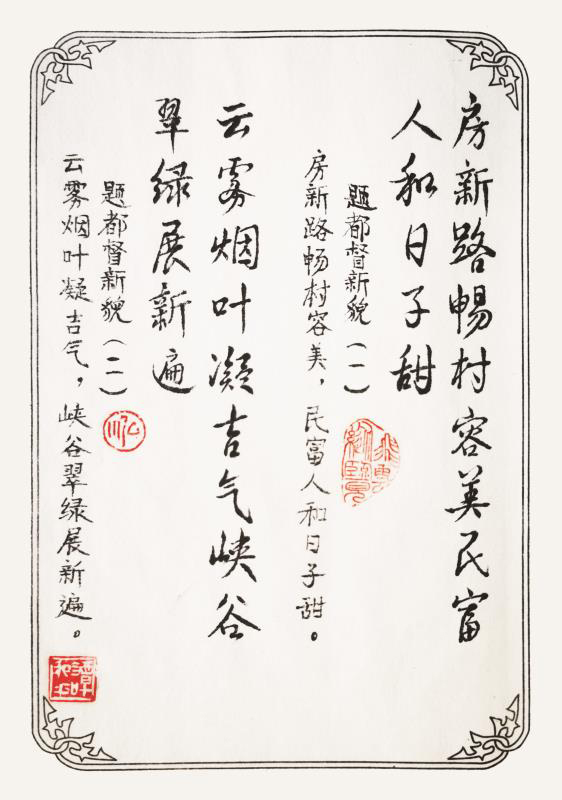 房新路暢村容美民富
人和日子甜
题都督新貌（一）
房新路畅村容美，民富人和日子甜。
云雾烟叶凝吉气峡谷
翠绿展新遍
题都督新貌（二）
云雾烟叶凝吉气，峡谷翠绿展新遍。